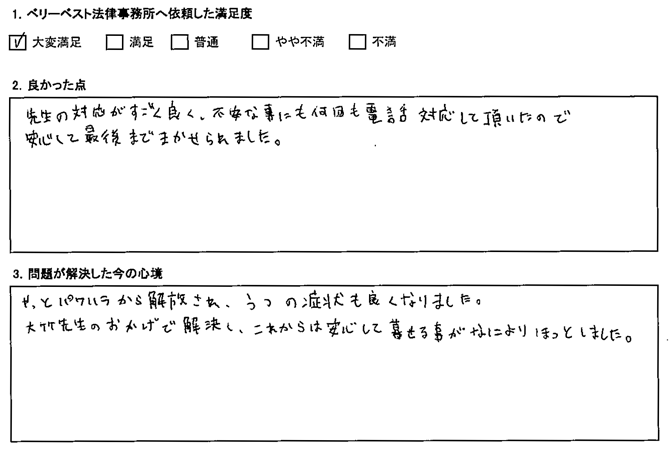 1. ベリーベスト法律事務所へ依頼した満足度
大変満足 満足 普通 やや不満 不満
2. 良かった点
先生の対応がすごく良く、不安な事にも何回も電話対応して頂いたので
安心して最後までまかせられました。
3. 問題が解決した今の心境
やっとパワハラから解放され、うつの症状も良くなりました。
大竹先生のおかげで解決し、これからは安心して暮せる事がなによりほっとしました。